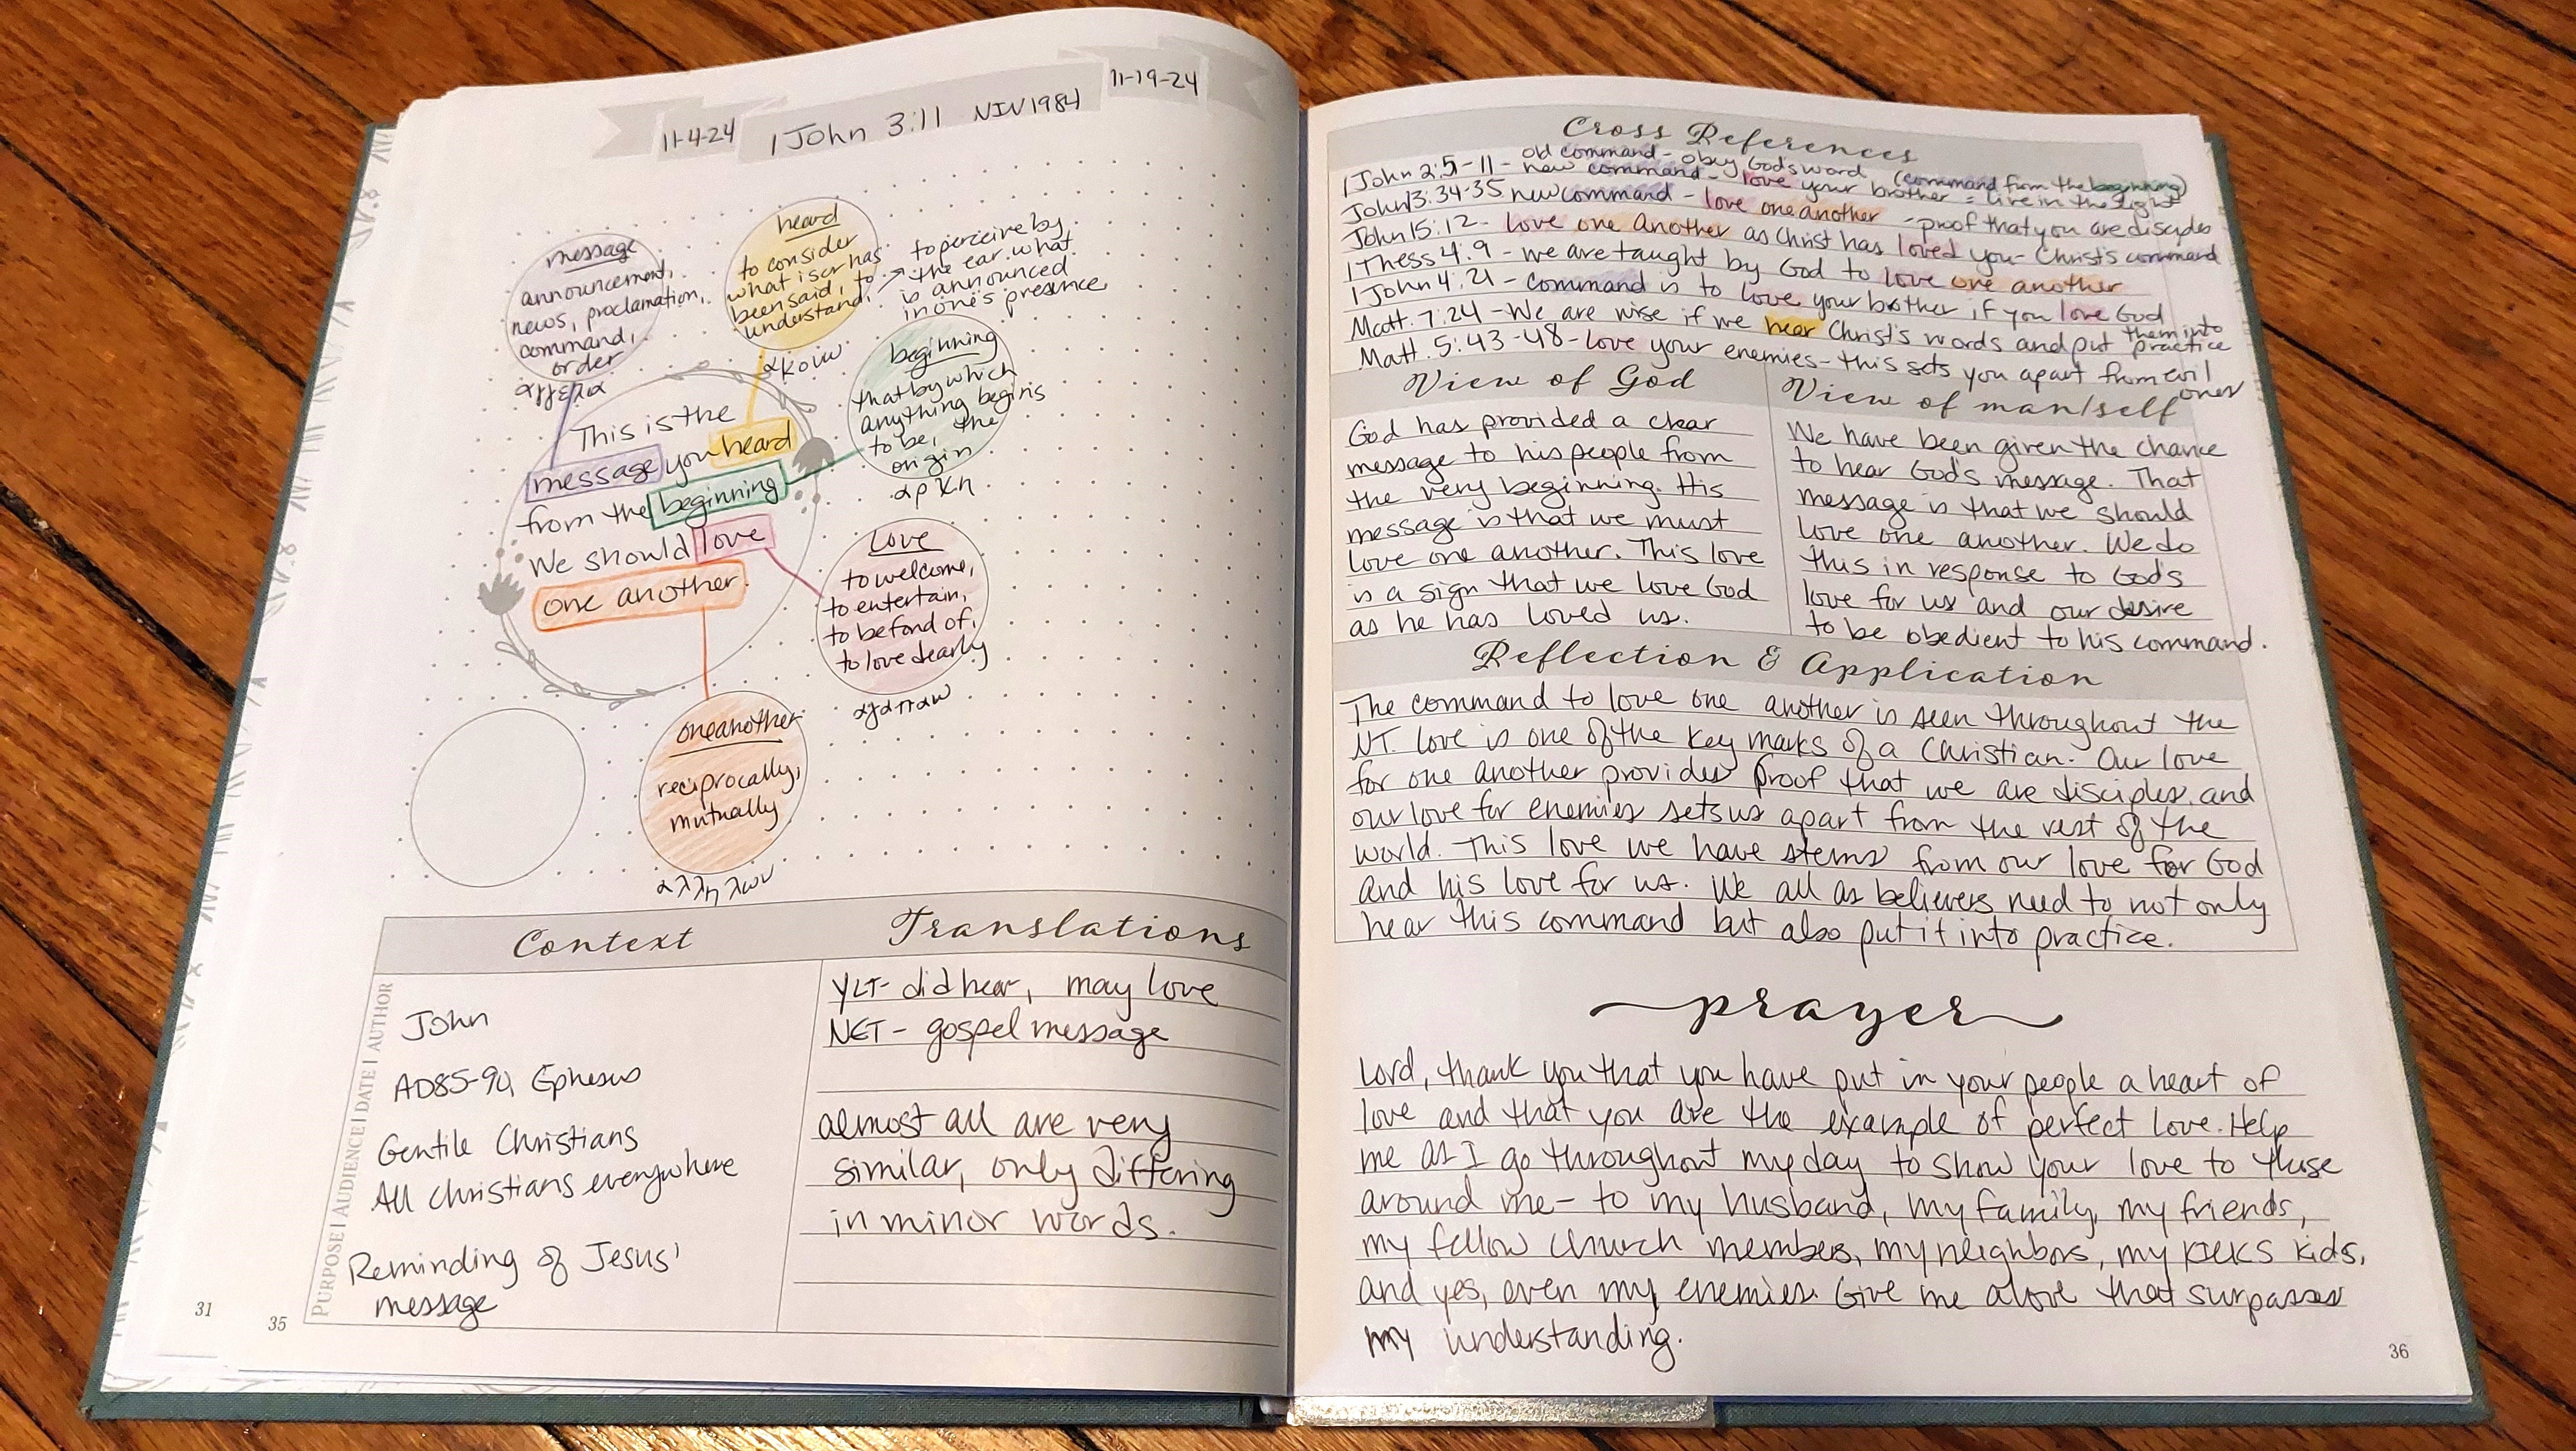 11-4-24
1 John 3:11 NIV 1984
11-19-24
message
announcement,
news, proclamation,
command,
order
αγγελια
heard
to consider
what is or has
been said, to
understand,
to perceive by
the ear what
is announced
in one's presence
ακουω
beginning
that by which
anything begins
to be, the
origin
αρχη
This is the
message you heard
from the beginning
We should love
one another.
Love
to welcome,
to entertain,
to be fond of,
to love dearly
αγαπαω
one another
reciprocally,
mutually
αλληλων
Context
PURPOSE | AUDIENCE | DATE | AUTHOR
John
AD85-90, Ephesus
Gentile Christians
All Christians everywhere
Reminding of Jesus'
message
Translations
YLT- did hear, may love
NET- gospel message
almost all are very
similar, only differing
in minor words.
31
35
Cross References
old command - obey God's word (command from the beginning)
1 John 2:5-11- new command - love your brother = live in the light
John 13:34-35 new command - love one another - proof that you are disciples
John 15:12- Love one another as Christ has loved you- Christ's command
1 Thess 4:9 - we are taught by God to love one another
1 John 4:21 - command is to love your brother if you love God
Matt. 7:24 - We are wise if we hear Christ's words and put them into practice
Matt. 5:43-48 - Love your enemies - this sets you apart from evil ones
View of God
God has provided a clear
message to his people from
the very beginning. His
message is that we must
love one another. This love
is a sign that we love God
as he has loved us.
View of man/self
We have been given the chance
to hear God's message. That
message is that we should
love one another. We do
this in response to God's
love for us and our desire
to be obedient to his command.
Reflection & Application
The command to love one another is seen throughout the
NT. Love is one of the key marks of a Christian. Our love
for one another provides proof that we are disciples, and
our love for enemies sets us apart from the rest of the
world. This love we have stems from our love for God
and his love for us. We all as believers need to not only
hear this command but also put it into practice.
prayer
Lord, thank you that you have put in your people a heart of
love and that you are the example of perfect love. Help
me as I go throughout my day to show your love to those
around me - to my husband, my family, my friends,
my fellow church members, my neighbors, my KICKS kids,
and yes, even my enemies. Give me a love that surpasses
my understanding.
36